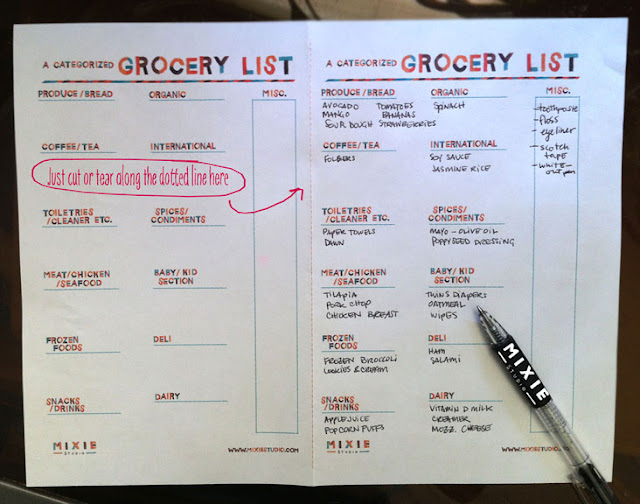 A CATEGORIZED GROCERY LIST
PRODUCE/BREAD
ORGANIC
MISC.
COFFEE/TEA
INTERNATIONAL
Just cut or tear along the dotted line here
TOILETRIES
/CLEANER ETC.
SPICES/
CONDIMENTS
MEAT/CHICKEN
/SEAFOOD
BABY/KID
SECTION
FROZEN
FOODS
DELI
SNACKS
/DRINKS
DAIRY
MIXIE
STUDIO
WWW.MIXIESTUDIO.COM
A CATEGORIZED GROCERY LIST
PRODUCE/BREAD
AVOCADO TOMATOES
MANGO BANANAS
SOUR DOUGH STRAWBERRIES
ORGANIC
SPINACH
MISC.
-toothpaste
-floss
-eyeliner
-scotch
tape
-white-
out pen
COFFEE/TEA
FOLGERS
INTERNATIONAL
SOY SAUCE
JASMINE RICE
TOILETRIES
/CLEANER ETC.
PAPER TOWELS
DAWN
SPICES/
CONDIMENTS
MAYO - OLIVE OIL
POPPYSEED DRESSING
MEAT/CHICKEN
/SEAFOOD
TILAPIA
PORK CHOP
CHICKEN BREAST
BABY/KID
SECTION
TWINS DIAPERS
OATMEAL
WIPES
FROZEN
FOODS
FROZEN BROCCOLI
COOKIES & CREAM
DELI
HAM
SALAMI
SNACKS
/DRINKS
APPLE JUICE
POPCORN PUFFS
DAIRY
VITAMIN D MILK
CREAMER
MOZZ. CHEESE
MIXIE
STUDIO
WWW.MIXIESTUDIO.COM
MIXIE
STUDIO